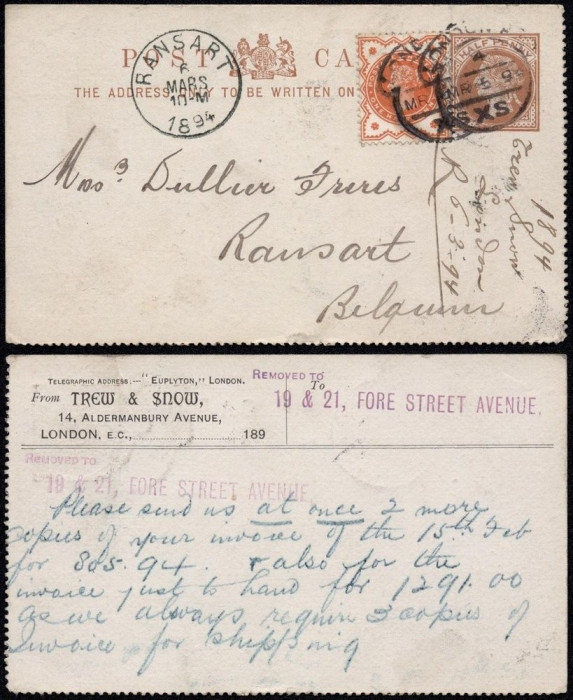 POST CA
THE ADDRESS ONLY TO BE WRITTEN ON
HALF PENNY
RANSART
6
MARS
10-M
1894
Mrs Dullier Freres
Ransart
Belgium
1894
Trew & Snow
London
R 6-3-94
TELEGRAPHIC ADDRESS:—"EUPLYTON," LONDON.
From TREW & SNOW,
14, ALDERMANBURY AVENUE,
LONDON, E.C., 189
To
REMOVED TO
19 & 21, FORE STREET AVENUE,
REMOVED TO
19 & 21, FORE STREET AVENUE,
Please send us at once 2 more
copies of your invoice of the 15th Feb
for 805.94. & also for the
invoice just to hand for 1291.00
as we always require 3 copies of
Invoice for shipping